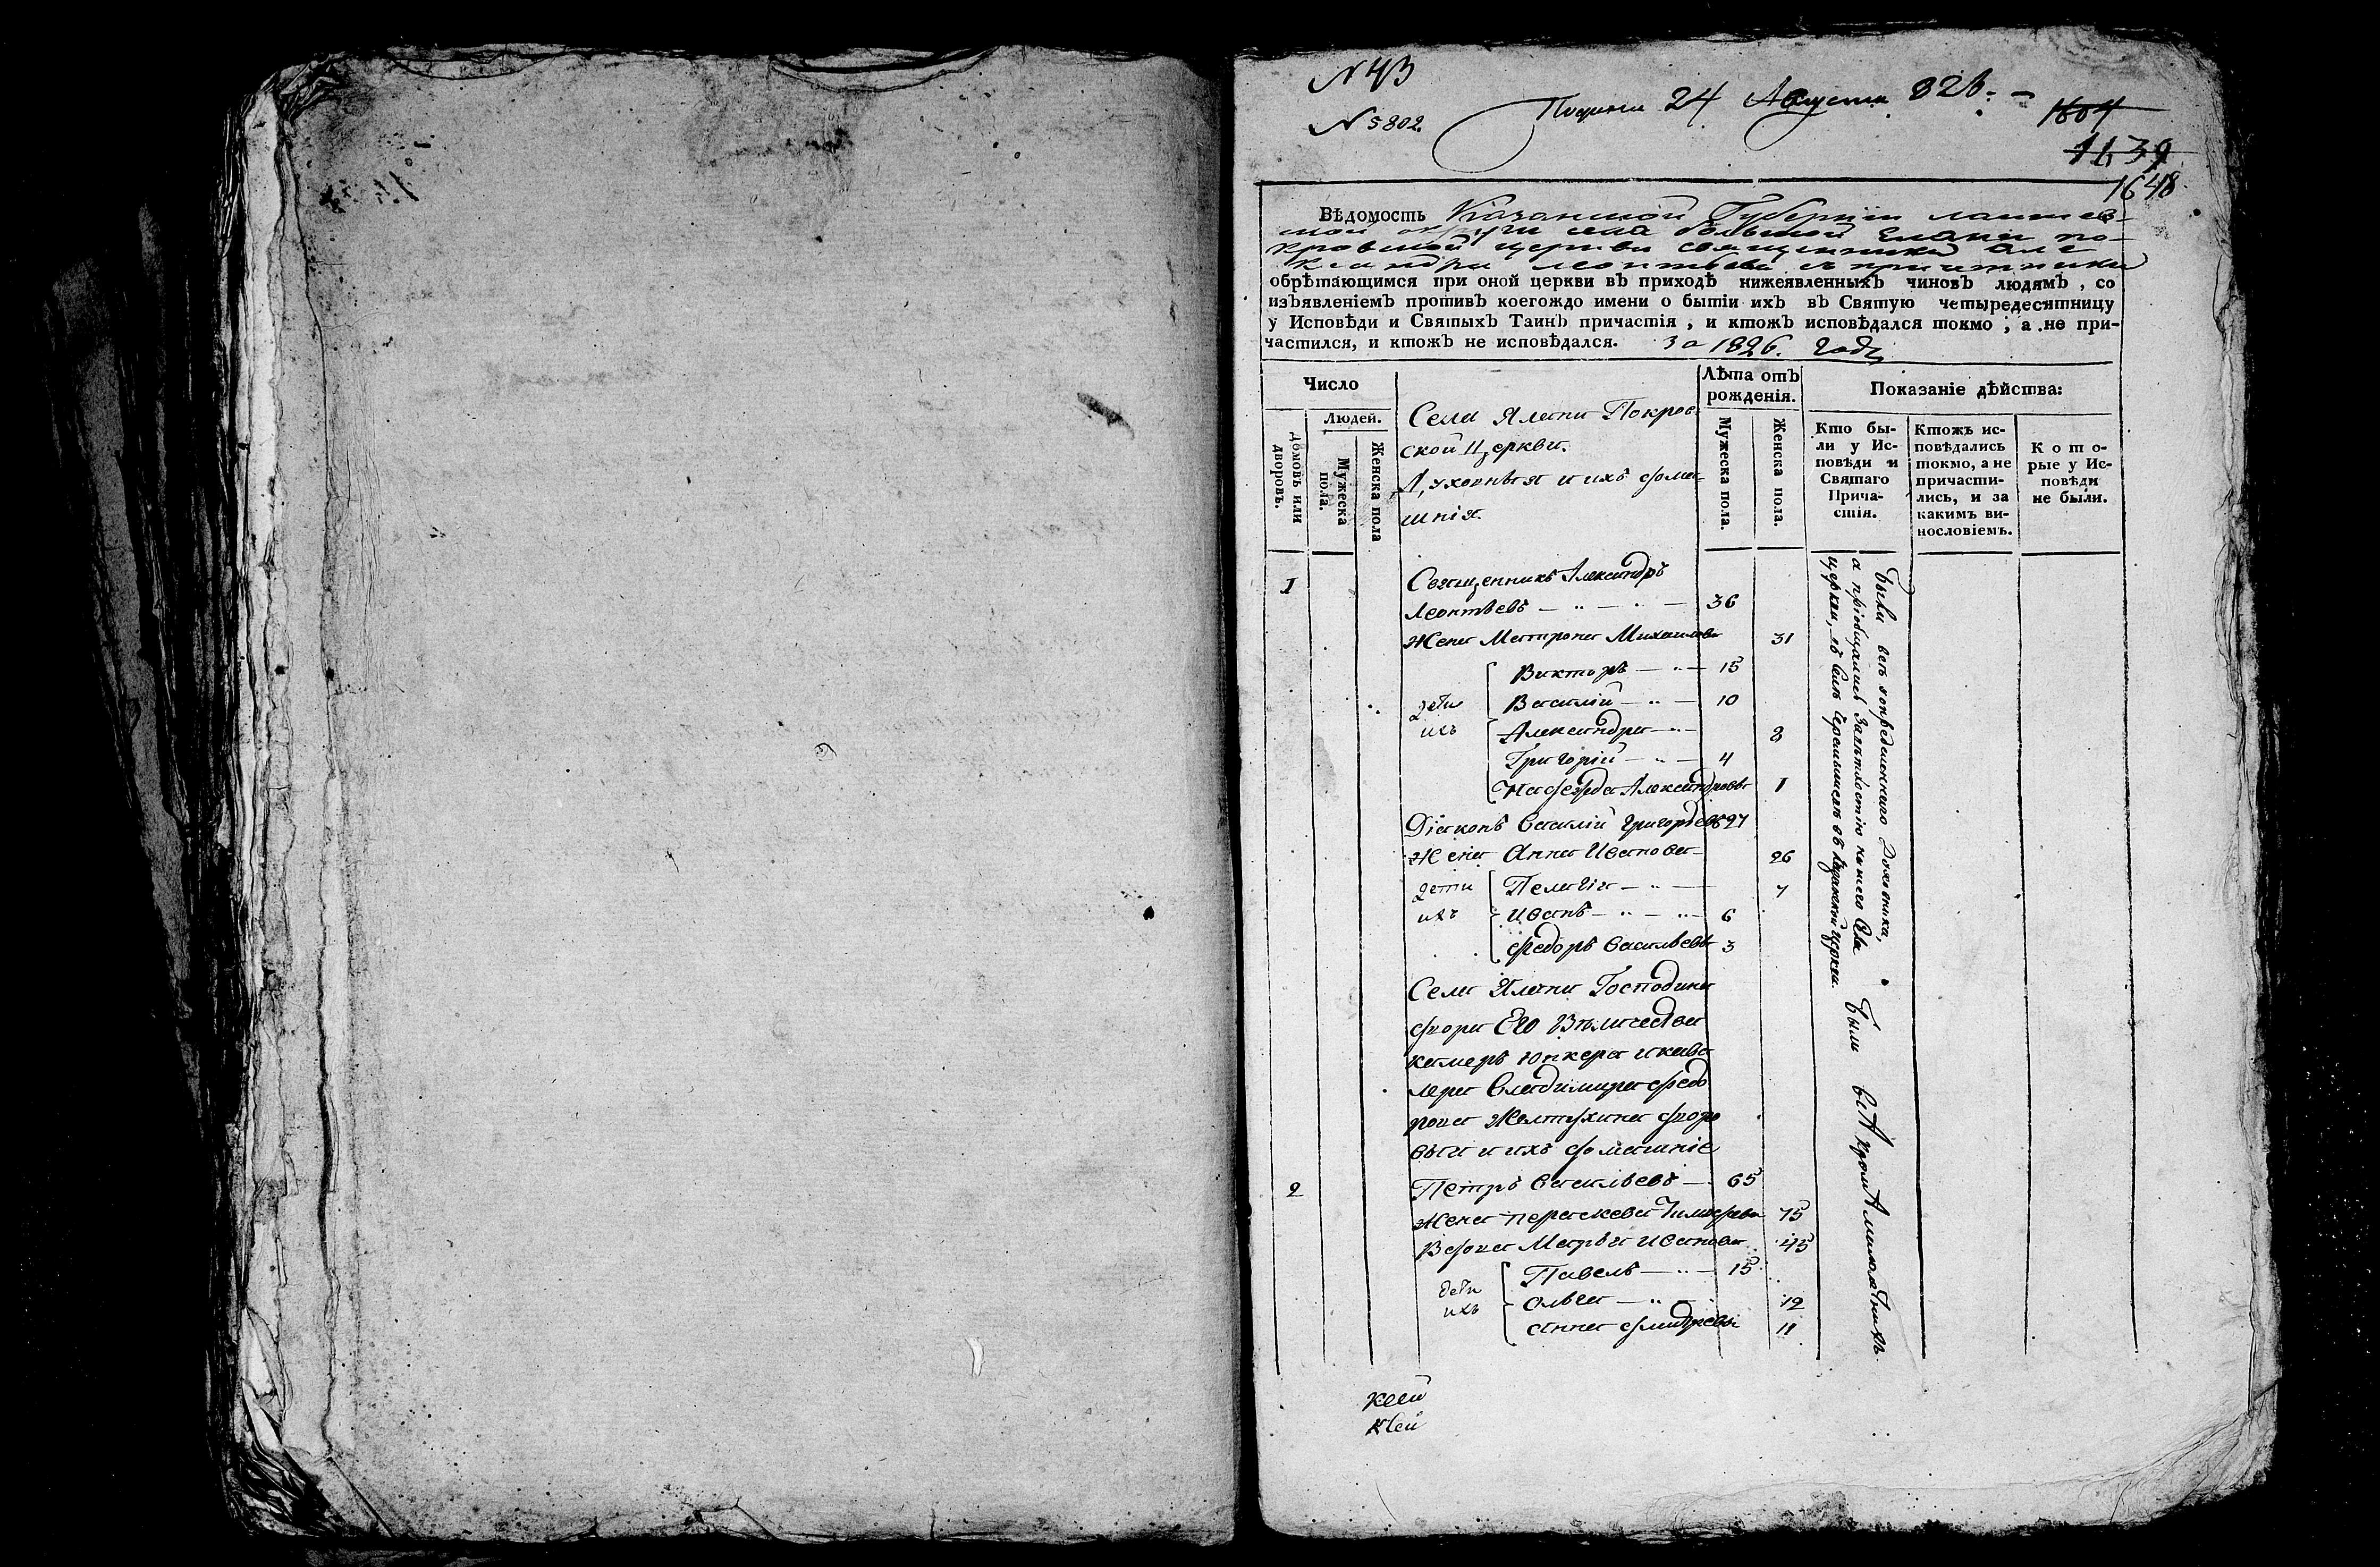 N 43
N 5802.
24 Августа 826.
1604
1439
1648
Вѣдомость Казанской Губерніи Лаишев-
ской округи села большой Елани по-
кровской церкви священника Але-
ксандра Леонтьева съ причтники
обрѣтающимся при оной церкви въ приходѣ нижеявленныхъ чиновъ людямъ, со
изъявленіемъ противъ коегождо имени о бытіи ихъ въ Святую четыредесятницу
у Исповѣди и Святыхъ Таинъ причастія, и ктожъ исповѣдался токмо, а не при-
частился, и ктожъ не исповѣдался. за 1826. годъ
Число
Людей.
Домовъ или дворовъ.
Мужеска пола.
Женска пола
Села Ялани Покров
ской Церкви.
Духовныя и ихъ дома
шнія.
Лѣта отъ
рожденія.
Мужеска пола.
Женска пола.
Показаніе дѣйства:
Кто бы-
ли у Ис-
повѣди и
Святаго
Прича-
стія.
Ктожъ ис-
повѣдались
токмо, а не
причасти-
лись, и за
какимъ ви-
нословіемъ.
Кото-
рые у Ис-
повѣди
не были.
1 Священникъ Александръ
Леонтьевъ 36
Жена Матрона Михаилова 31
дети ихъ
Викторъ 15
Василій 10
Александра 8
Григорій 4
Александровы 1
Діаконъ Василій Григорьевъ 27
Жена Анна Иванова 26
дети ихъ
Пелагія 7
Иванъ 6
Федоръ Васильевы 3
Села Ялани Господина
двора Его Величества
камеръ Юнкера и кава
лера Владимира Федо
рова Желтухина дворо
выя и ихъ домашніе
2 Петръ Васильевъ 65
Жена Параскева Тимофеева 75
Вдова Марья Иванова 45
дети ихъ
Павелъ 15
Ольга 12
Анна Дмитревы 11
Были
церкви
Были всѢ кромѢ малолѢтнихъ.